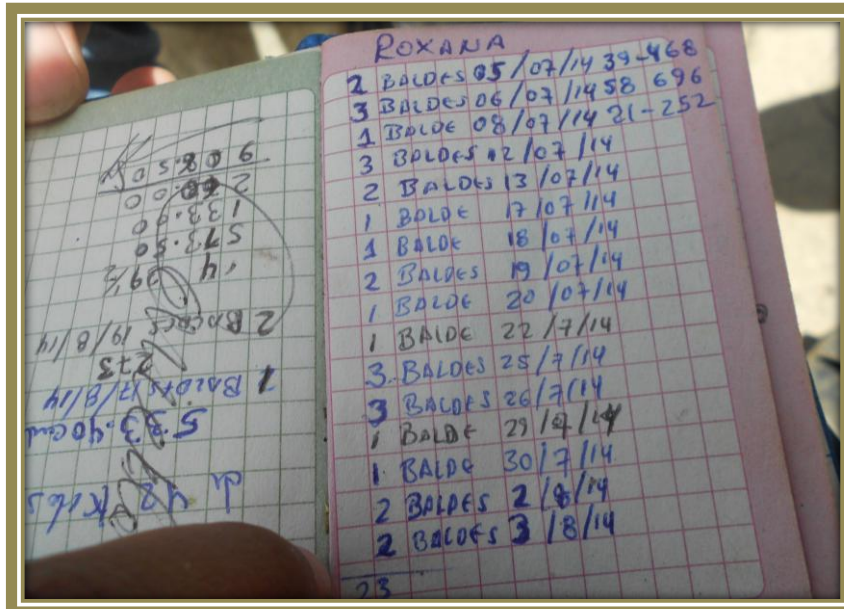 ROXANA
2 BALDES 05/07/14 39-468
3 BALDES 06/07/14 58 696
1 BALDE 08/07/14 21-252
3 BALDES 12/07/14
2 BALDES 13/07/14
1 BALDE 17/07/14
1 BALDE 18/07/14
2 BALDES 19/07/14
1 BALDE 20/07/14
1 BALDE 22/7/14
3 BALDES 25/7/14
3 BALDES 26/7/14
1 BALDE 29/7/14
1 BALDE 30/7/14
2 BALDES 2/8/14
2 BALDES 3/8/14
23
Kilos
1 BALDES 17/8/14
273
2 BALDES 19/8/14
573.50
133.00
908.50